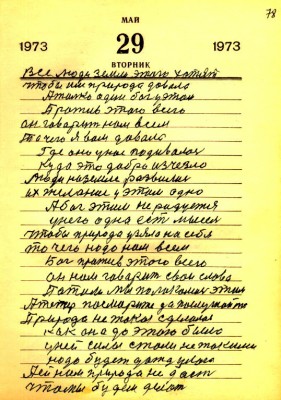 78
МАЙ
1973 29 1973
ВТОРНИК
Все люди земли этого хотят
чтобы им природа давала
А только один бог у этом
Против этого всего
он говарит нам всем
То чего я вам давал
Где оно у нас подивалось
куда это добро изчезло
Люди на земле развили
их желание у этим одно
А бог этим не радуется
у него одна ест мысля
чтобы природа узяла на себя
то чего надо нам всем
Бог против этого всего
он нам говарит свои слова
мы этим
А тепер посмарите да послухайте
Природа не такой сделалась
как она до этого была
у ней силы стали не такими
надо будет
А ей нам природа не даст
что мы будем делат